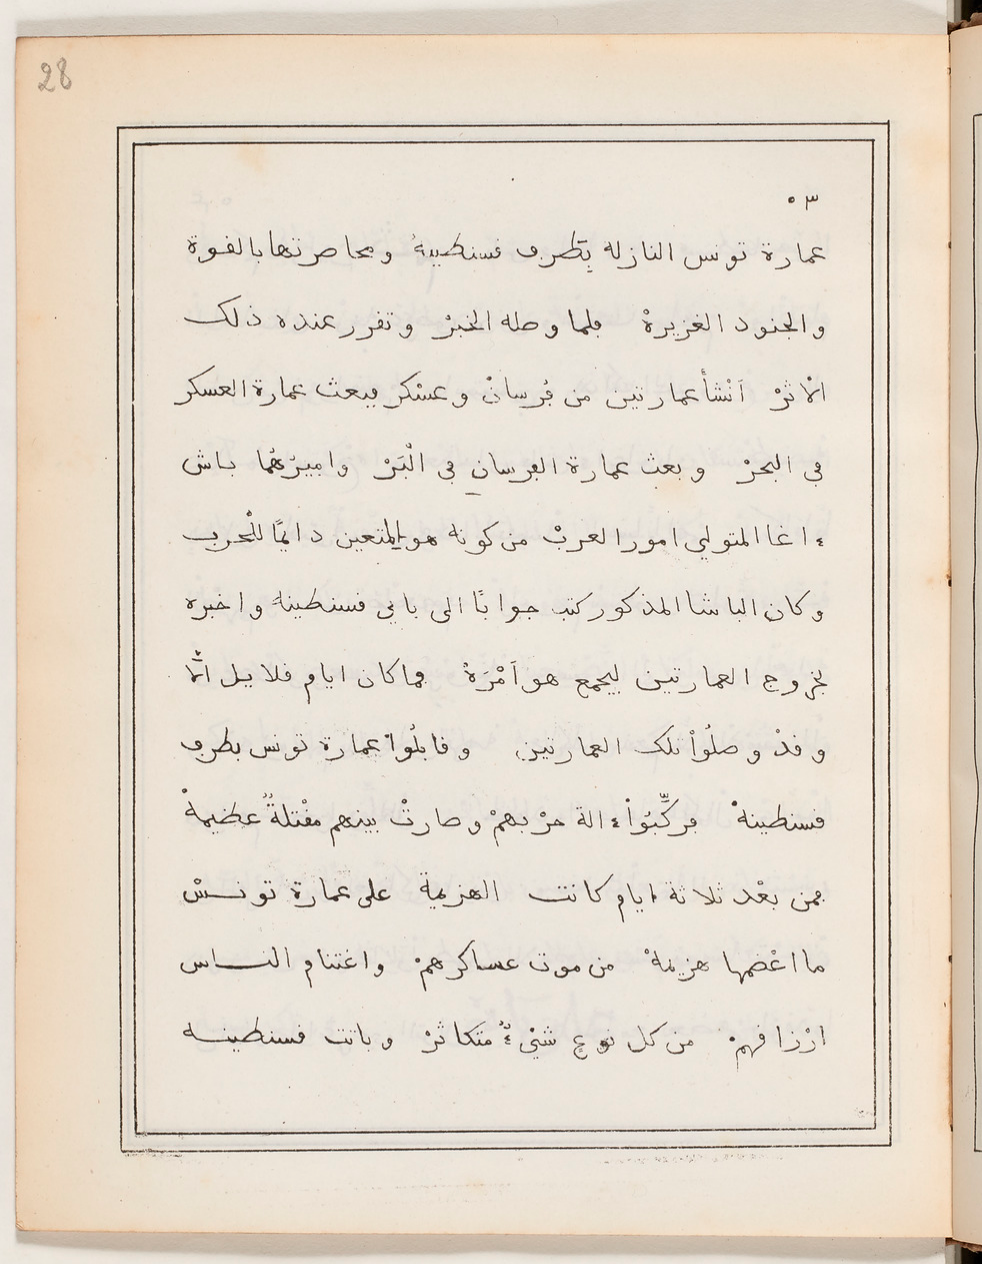 28
٣٠
عمارة تونس النازله بطرف فسنطينة ومحاصرتها بالفوة
والجنود الغزيرةْ فلما وصله الخبرْ وتفرر عنده ذلك
الاْثرْ اَنْشأ عمارتين من فُرسانْ وعسْكر فبعث عمارة العسكر
في البحرْ وبعث عمارة الفرسان في الْبَرْ واميرْهُما باش
ءاغا المتولي امور العربْ من كونه هو المتعين دائمًا للْحرب
وكان الباشا المذكور كتب جوابًا الى باي فسنطينة واخبره
بخروج العمارتين ليجمع هو اَمْرَهْ فما كان ايام فلايل الاَّ
وفدْ وصلُواْ تلك العمارتين وفابلُواْ عمارة تونس بطرف
فسنطينةْ فركَّبُواْ ءالة حرْبهمْ وصارتْ بينهم مفْتلةٌ عظيمةْ
فمن بعْد ثلاثة ايام كانت الهزيمة على عمارة تونسْ
ما اعْضمها هزيمةْ من موت عساكرهمْ واغتنام الناس
ارْزافهمْ من كل نوع شيْءٌ متكاثرْ وباتت فسنطينه